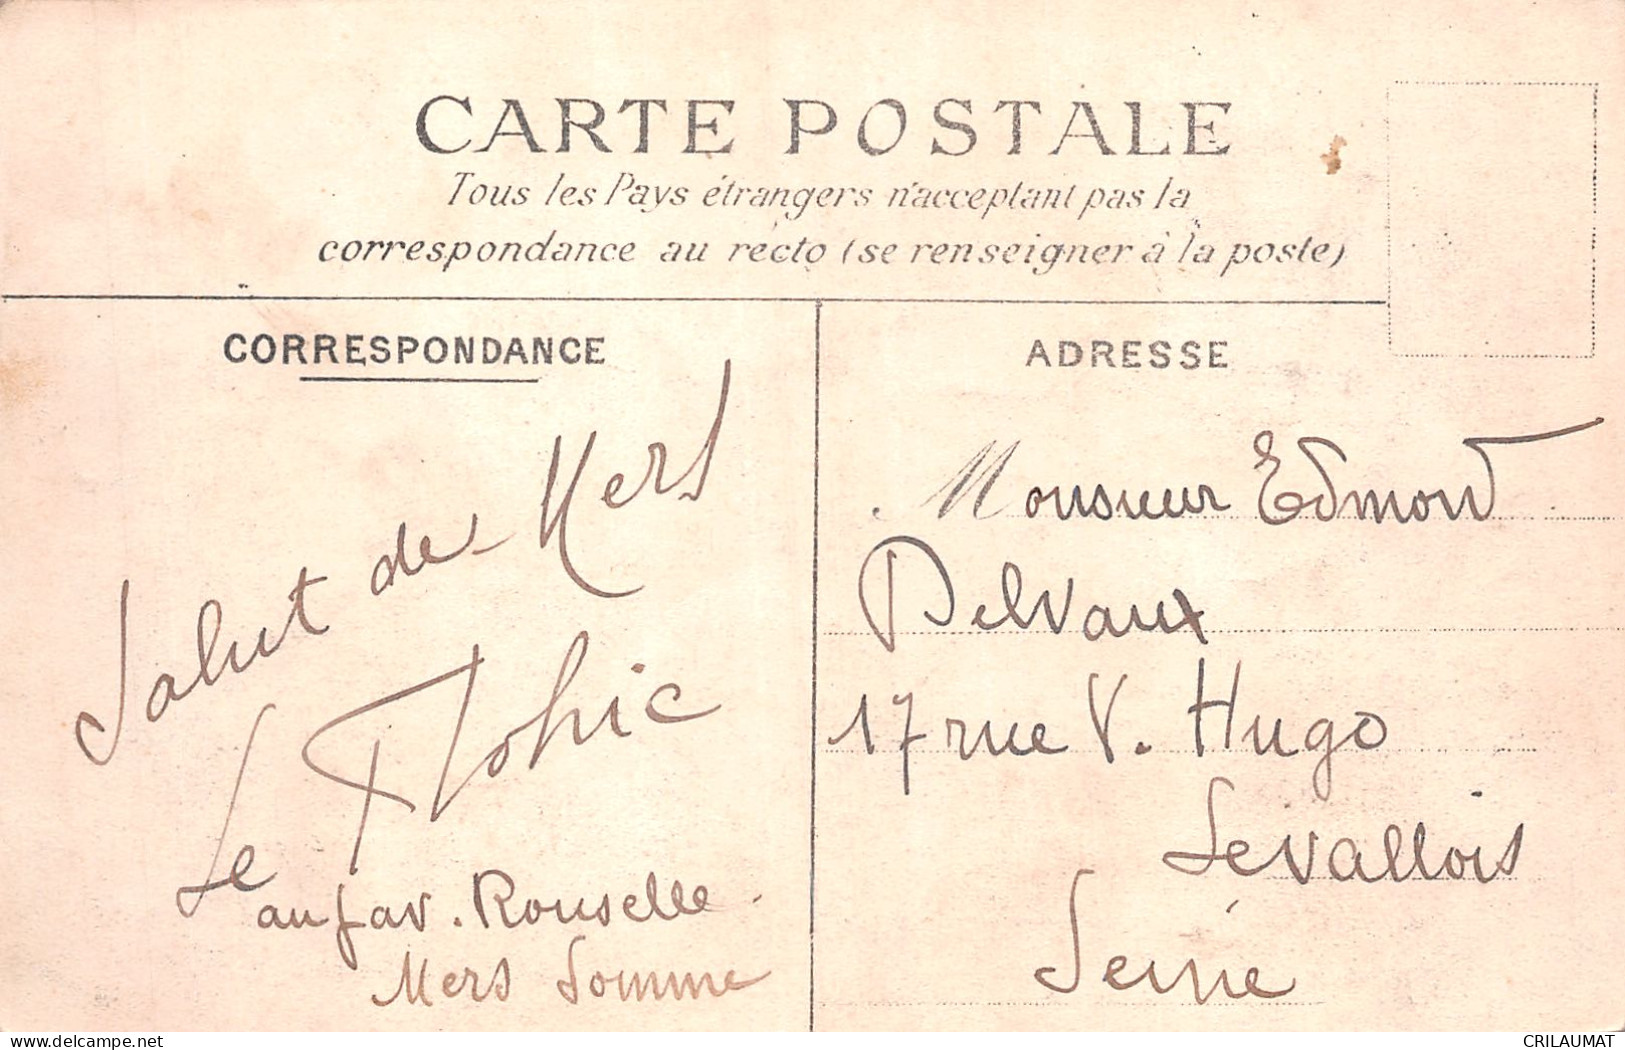 CARTE POSTALE
Tous les Pays étrangers n'acceptant pas la
correspondance au recto (se renseigner à la poste)
CORRESPONDANCE
Salut de Mers
Le
au fav. Rouselle.
Mers Somme
ADRESSE
Monsieur Edmond
Delvaux
17 rue V. Hugo
Levallois
Seine
www.delcampe.net
CRILAUMAT